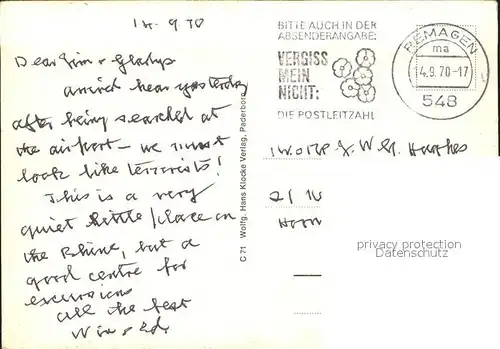 14. 9 70
Dear Jim & Gladys
arrived hear yesterday
after being searched at
the airport – we must
look like terrorists!
This is a very
quiet little place on
the Rhine, but a
good centre for
excursions
all the best
Win & Ed.
C 71 Wolfg. Hans Klocke Verlag, Paderborn
BITTE AUCH IN DER
ABSENDERANGABE:
VERGISS
MEIN
NICHT:
DIE POSTLEITZAHL
REMAGEN
ma
14.9.70-17
548
J. W.
21
privacy protection
Datenschutz